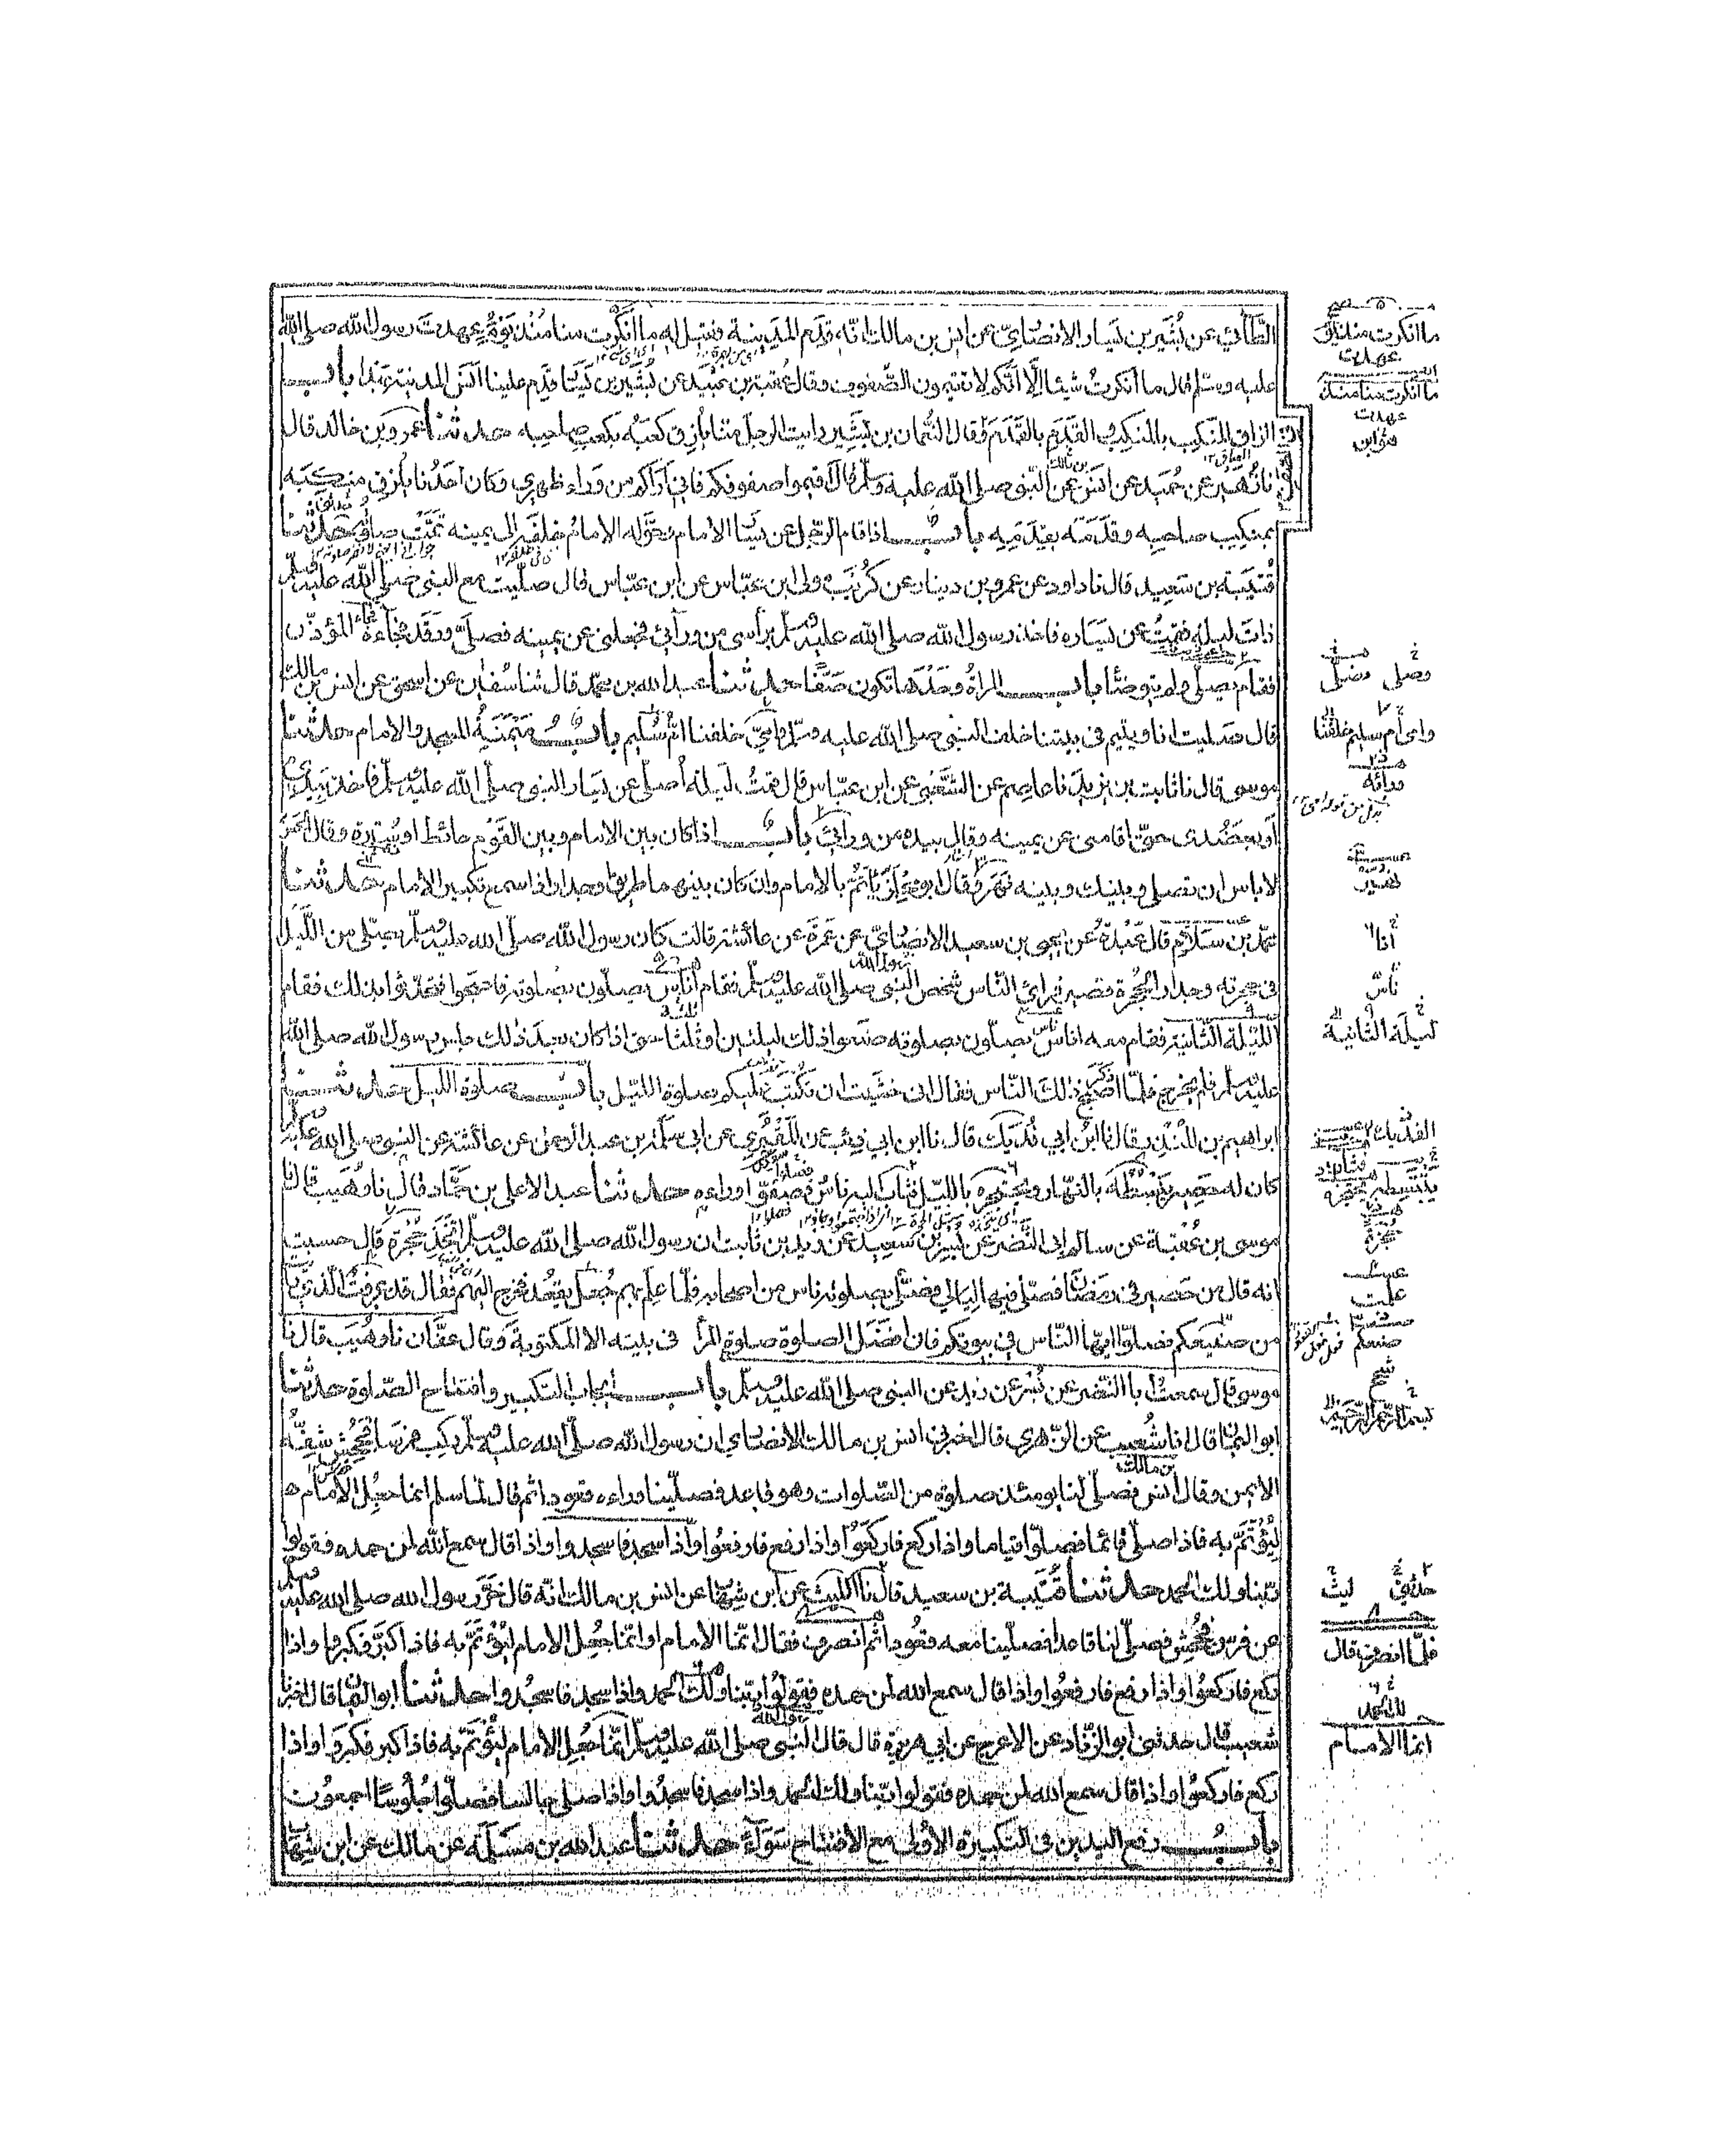 الطَّائيّ عن بُشَير بن يَسار الانصاريّ عن انس بن مالك انّه قدِم المدينة فقيل له ما انكَرت منا مُنذ يَوْم عهدتَ رسول الله صلى الله
عليه وسلم قال ما انكرتُ شيئا الّا انّكم لا تقيمون الصفوف وقال عُقبة بن عُبَيد عن بُشَير بن يَسَار قدِم علينا انس المدينة بهذا بابُ
الزاق المنكِب بالمنكِب والقَدَم بالقَدَم وقال النُّعمان بن بَشِير رايت الرجل منّا يُلزِق كعبَه بكعب صاحبه حدثنا عَمرو بن خالد قال
نا زُهَير عن حُمَيد عن انس عن النبي صلى الله عليه وسلم قال اقيموا صفوفكم فانى اَراكم من وراء ظهري وكان احدُنا يُلزق منكبَه
بمنكِب صاحبه وقدَمَه بقدَمِه بابٌ اذا قام الرّجل عن يَسار الامام وحَوّله الامامُ خلفَه الى يمينه تَمَّتْ صلوته حدثنا
قُتَيبَة بن سَعِيد قال نا داود عن عمرو بن دينار عن كُرَيب مولى ابن عبّاس عن ابن عبّاس قال صلّيت مع النبي صلى الله عليه وسلم
ذاتَ ليلة فقمتُ عن يَساره فاخذ رسول الله صلى الله عليه وسلم براسى من ورائي فجعلنى عن يمينه فصلّى ورقد فجاءه المؤذّن
فقام يصلى ولم يتوضّأ بابٌ المراةُ وحدَها تكون صَفًّا حدثنا عبد الله بن محمد قال ثنا سُفيان عن اسحٰق عن انس بن مالك
قال صليت انا ويتيم فى بيتنا خلف النبي صلى الله عليه وسلم وامّي خلفنا امُّ سُلَيم بابُ مَيْمَنَة المسجد والامام حدثنا
موسى قال نا ثابت بن يزيد نا عاصم عن الشَّعْبى عن ابن عبّاس قال قمتُ ليلةً اُصلّى عن يَسار النبى صلى الله عليه وسلم فاخذ بيدى
او بعَضُدى حتى اقامنى عن يمينه وقال بيده من ورائي بابٌ اذا كان بين الامام وبين القَوم حائط او سُترة وقال الحسن
لا باس ان تصلي وبينك وبينه نَهَر وقال ابو مِجْلَز يَأتَمُّ بالامام وان كان بينهما طريق او جدار اذا سمع تكبير الامام حدثنا
محمد بن سَلَام قال عَبْدة عن يحيى بن سعيد الانصاريّ عن عَمْرَة عن عائشة قالت كان رسول الله صلى الله عليه وسلم يصلّى من اللّيل
فى حجرته وجدار الحُجرة قصير فراى النّاس شخص النبي صلى الله عليه وسلم فقام اُناس يصلّون بصلوته فاصبحوا فتحدّثوا بذلك فقام
الليلة الثانية فقام معه اناس يصلّون بصلوته صنعوا ذلك ليلتين او ثلثا حتى اذا كان بعد ذلك جلس رسول الله صلى الله
عليه وسلم فلم يخرج فلمّا اصبح ذكر ذلك النّاس فقال انى خشيت ان تُكتَب عليكم صلوة الليل بابُ صلوة الليل حدثنا
ابراهيم بن المُنْذِر قال نا ابن ابي فُدَيك قال نا ابن ابى ذئب عن المَقْبُرِي عن ابى سلمة بن عبد الرحمٰن عن عائشة عن النبي صلى الله عليه وسلم
كان له حصير يَبْسُطُه بالنهار ويحتجره بالليل فثاب اليه ناس فصفّوا وراءه حدثنا عبد الاعلى بن حمّاد قال نا وُهَيب قال نا
موسى بن عُقْبَة عن سالم ابى النَّضر عن بُسر بن سعيد عن زيد بن ثابت ان رسول الله صلى الله عليه وسلم اتَّخذ حُجْرة قال حسبت
انه قال من حَصِير فى رمضان فصلّى فيها ليالي فصلّى بصلوته ناس من اصحابه فلمّا علم بهم جعل يقعُد فخرج اليهم فقال قد عرفتُ الذي رايت
من صنيعكم فصلّوا ايّها الناس في بيوتكم فان افضل الصلوة صلوة المرأ فى بيته الا المكتوبة وقال عفّان نا وُهَيب قال نا
موسى قال سمعتُ ابا النضر عن بُسر عن زيد عن النبى صلى الله عليه وسلم بابُ ايجاب التكبير وافتتاح الصلوة حدثنا
ابو اليمان قال انا شُعيب عن الزُّهري قال اخبرنى انس بن مالك الانصاري ان رسول الله صلى الله عليه وسلم ركب فرسا فجُحِش شِقّه
الايمن وقال انس فصلّى لنا يومئذ صلوة من الصلوات وهو قاعد فصلّينا وراءه قعودا ثم قال لما سلم انما جُعِل الامام
ليُؤتَمَّ به فاذا صلى قائما فصلّوا قياما واذا ركع فاركَعُوا واذا رفع فارفعُوا واذا سجد فاسجدوا واذا قال سمع الله لمن حمده فقولوا
ربّنا ولك الحمد حدثنا قُتَيبة بن سعيد قال نا الليث عن ابن شهاب عن انس بن مالك انّه قال خَرَّ رسول الله صلى الله عليه وسلم
عن فرس فجُحِش فصلّى لنا قاعدا فصلّينا معه قعودا ثم انصرف فقال انّما الامام او انّما جُعِل الامام ليُؤتَمَّ به فاذا كبّر فكبروا واذا
ركع فاركعُوا واذا رفع فارفعُوا واذا قال سمع الله لمن حمده فقولُوا ربّنا ولك الحمد واذا سجد فاسجُدوا حدثنا ابو اليمان قال اخبرنا
شعيب قال حدثنى ابو الزّناد عن الاعرج عن ابي هريرة قال قال النبي صلى الله عليه وسلم انّما جُعِل الامام ليُؤتَمَّ به فاذا كبر فكبروا واذا
ركع فاركعُوا واذا قال سمع الله لمن حمده فقولوا ربّنا ولك الحمد واذا سجد فاسجدُوا واذا صلى جالسا فصلّوا جُلُوسًا اجمعُون
بابُ رفع اليدين فى التكبيرة الاُولى مع الافتتاح سَوَاءً حدثنا عبد الله بن مَسْلَمَة عن مالك عن ابن شهاب
ما انكرت منا
عهدت
ما انكرت منا منذ
عهدت
فصلى
وامى ام سليم خلفنا
ورائه
انا
ناسٌ
ليلة الثانية
حجزة
علمت
صنعكم
بسم الله الرحمن الرحيم
حدثنى ليث
فلمّا انصرف قال
لك الحمد
انما الامام